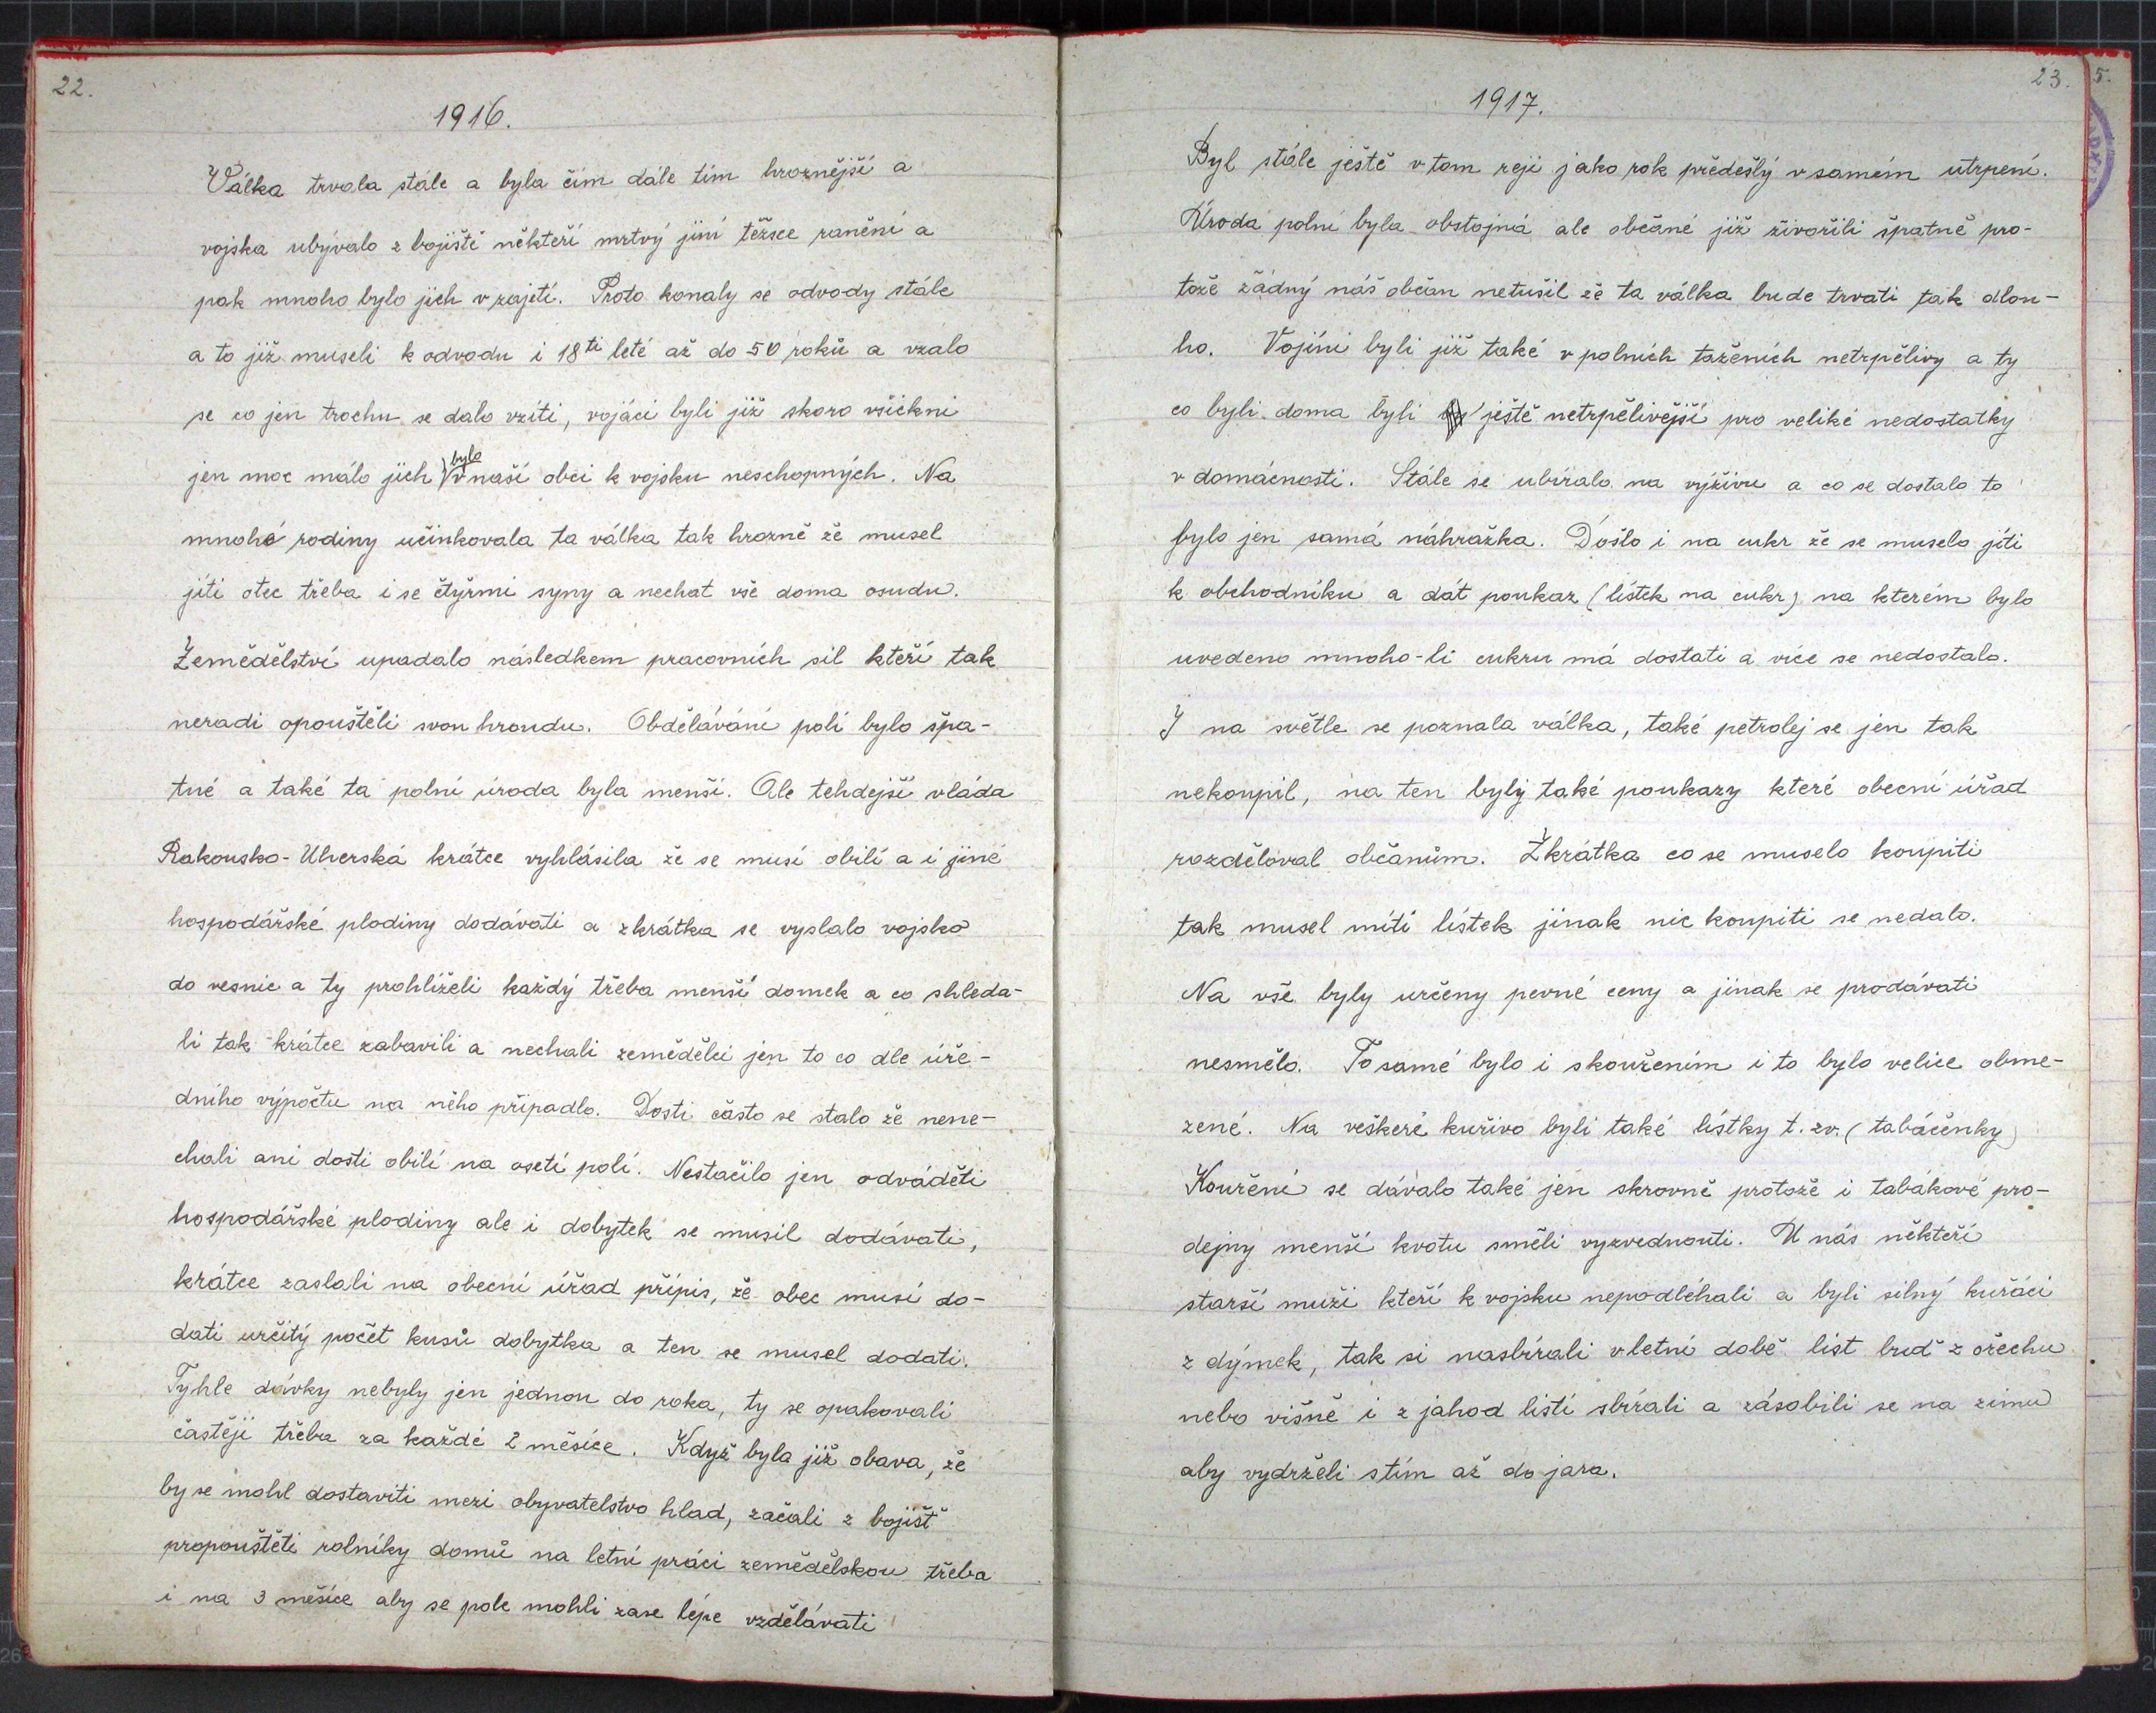 22.
1916.
Válka trvala stále a byla čím dále tím hroznější a
vojska ubývalo z bojiště někteří mrtvý jiní těžsce ranění a
pak mnoho bylo jich v zajetí. Proto konaly se odvody stále
a to již museli k odvodu i 18ti leté až do 50 roků a vzalo
se co jen trochu se dalo vzíti, vojáci byli již skoro všickni
jen moc málo jich bylo v naší obci k vojsku neschopných. Na
mnohé rodiny učinkovala ta válka tak hrozně že musel
jíti otec třeba i se čtyřmi syny a nechat vše doma osudu.
Zemědělství upadalo následkem pracovních sil kteří tak
neradi opouštěli svou hroudu. Obdělávání polí bylo špa-
tné a také ta polní úroda byla menší. Ale tehdejší vláda
Rakousko-Uherská krátce vyhlásila že se musí obilí a i jiné
hospodářské plodiny dodávati a zkrátka se vyslalo vojsko
do vesnic a ty prohlíželi každý třeba menší domek a co shleda-
li tak krátce zabavili a nechali zemědělci jen to co dle úře-
dního výpočtu na něho připadlo. Dosti často se stalo že nene-
chali ani dosti obilí na osetí polí. Nestačilo jen odváděti
hospodářské plodiny ale i dobytek se musil dodávati,
krátce zaslali na obecní úřad přípis, že obec musí do-
dati určitý počet kusů dobytka a ten se musel dodati.
Tyhle dávky nebyly jen jednou do roka, ty se opakovali
častěji třeba za každé 2 měsíce. Když byla již obava, že
by se mohl dostaviti mezi obyvatelstvo hlad, začali z bojišť
propouštěti rolníky domů na letní práci zemědělskou třeba
i na 3 měsíce aby se pole mohli zase lépe vzdělávati
23.
1917.
Byl stále ještě v tom reji jako rok předešlý v samém utrpení.
Úroda polní byla obstojná ale občané již živořili špatně pro-
tože žádný náš občan netušil že ta válka bude trvati tak dlou-
ho. Vojíni byli již také v polních taženích netrpělivy a ty
co byli doma byli ještě netrpělivější pro veliké nedostatky
v domácnosti. Stále se ubíralo na výživu a co se dostalo to
bylo jen samá náhražka. Došlo i na cukr že se muselo jíti
k obchodníku a dát poukaz (lístek na cukr) na kterém bylo
uvedeno mnoho-li cukru má dostati a více se nedostalo.
I na světle se poznala válka, také petrolej se jen tak
nekoupil, na ten byly také poukazy které obecní úřad
rozděloval občanům. Zkrátka co se muselo koupiti
tak musel míti lístek jinak nic koupiti se nedalo.
Na vše byly určeny pevné ceny a jinak se prodávati
nesmělo. To samé bylo i skouřením i to bylo velice obme-
zené. Na veškeré kuřivo byli také lístky t. zv. (tabáčenky)
Kouření se dávalo také jen skrovně protože i tabákové pro-
dejny menší kvotu směli vyzvednouti. U nás někteří
starší muži kteří k vojsku nepodléhali a byli silný kuřáci
z dýmek, tak si nasbírali v letní době list buď z ořechu
nebo višně i z jahod listí sbírali a zásobili se na zimu
aby vydrželi stím až do jara.
5.